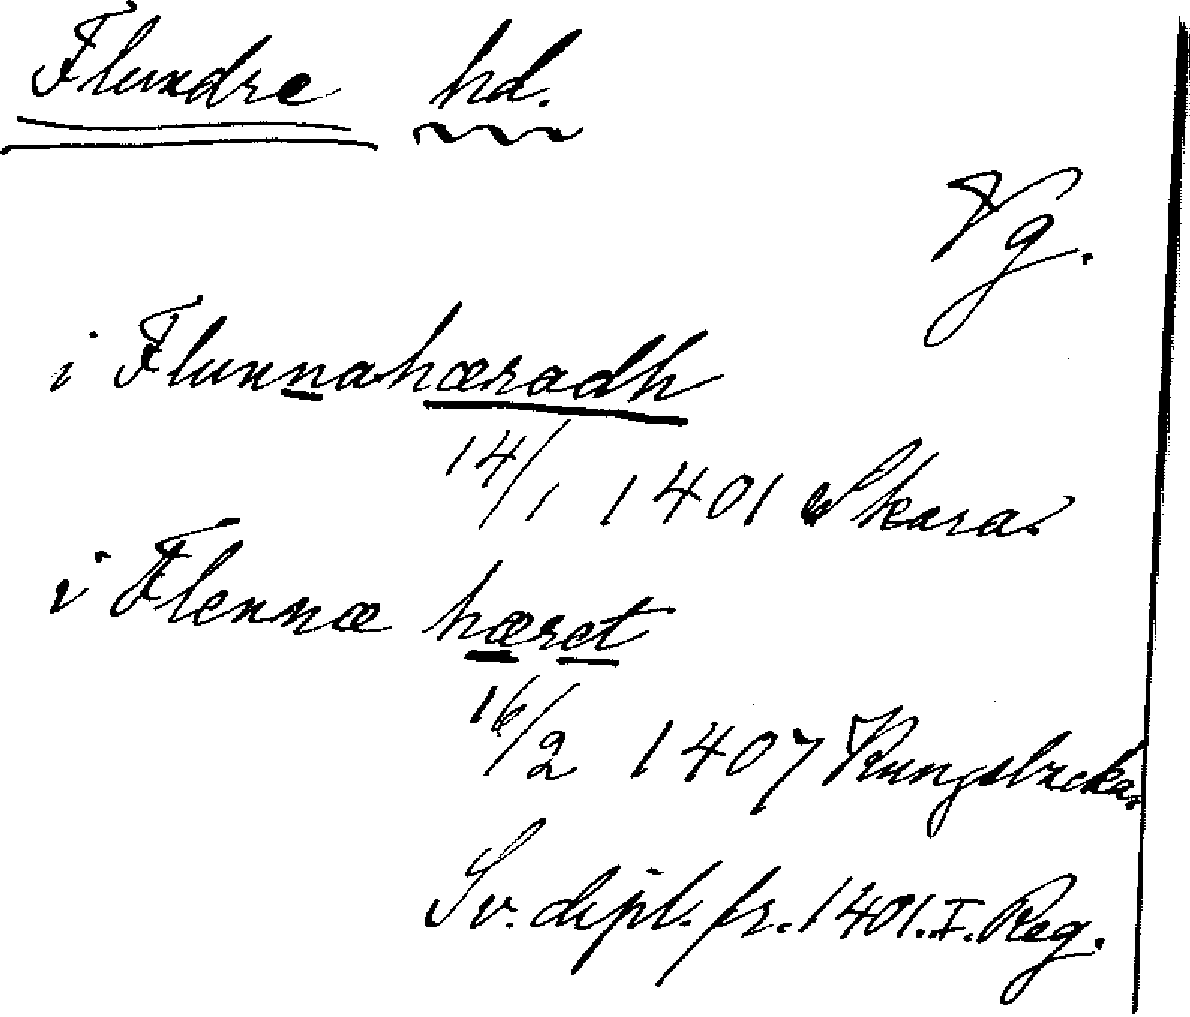 Flundre hd.
Vg.
i Flunnahæradh
14/1 1401 Skara.
i Flennæ hæret
16/2 1407 Kungsbacka.
Sv. dipl. fr. 1401. I. Reg.